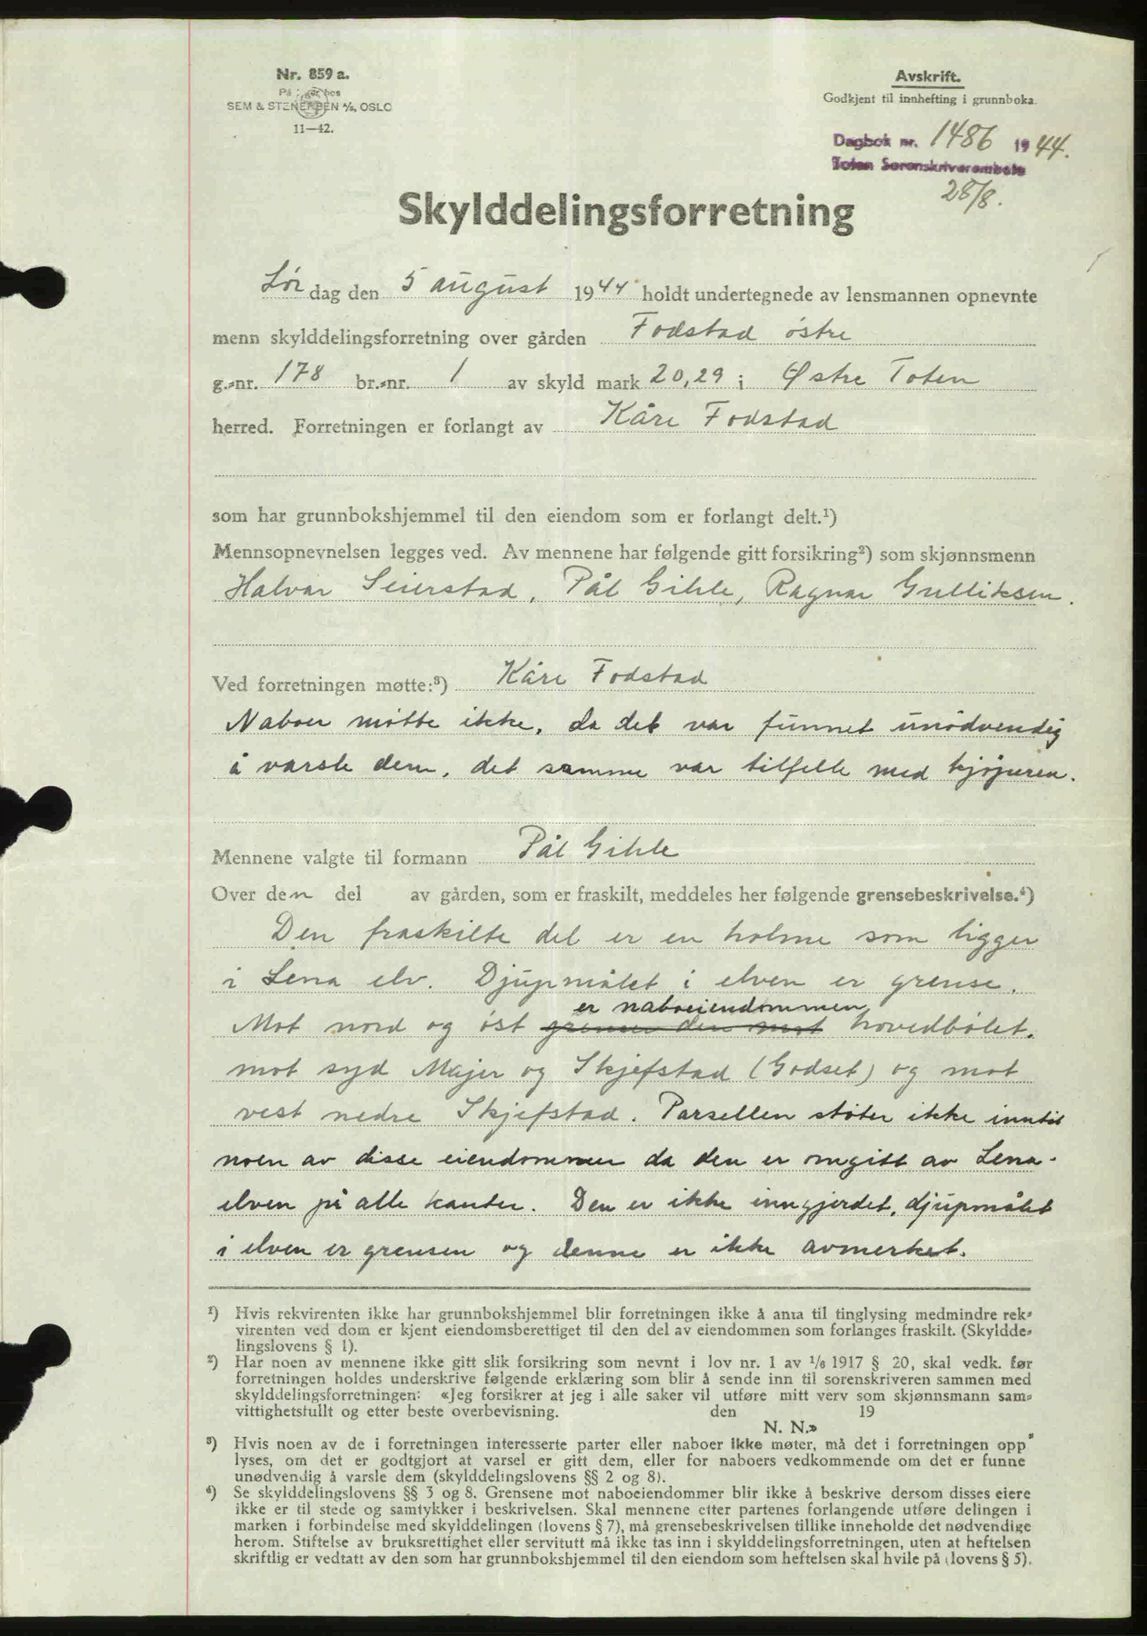 Nr. 859 a.
På lager hos
SEM & STENERSEN A/S, OSLO
11—42.
Avskrift.
Godkjent til innhefting i grunnboka.
Dagbok nr. 1486 1944.
Toten Sorenskriverembete
28/8.
Skylddelingsforretning
Lør dag den 5 august 1944 holdt undertegnede av lensmannen opnevnte
menn skylddelingsforretning over gården Fodstad østre
g.-nr. 178 br.-nr. 1 av skyld mark 20,29 i Østre Toten
herred. Forretningen er forlangt av Kåre Fodstad
som har grunnbokshjemmel til den eiendom som er forlangt delt.¹)
Mennsopnevnelsen legges ved. Av mennene har følgende gitt forsikring²) som skjønnsmenn
Halvar Seierstad, Pål Gihle, Ragnar Gulliksen.
Ved forretningen møtte:³) Kåre Fodstad
Naboer møtte ikke, da det var funnet unødvendig
å varsle dem, det samme var tilfelle med kjøperen.
Mennene valgte til formann Pål Gihle
Over den del av gården, som er fraskilt, meddeles her følgende grensebeskrivelse.⁴)
Den fraskilte del er en holme som ligger
i Lena elv. Djupmålet i elven er grense.
er naboeiendommen
Mot nord og øst grenser den mot hovedbølet.
mot syd Majer og Skjefstad (Godset) og mot
vest nedre Skjefstad. Parsellen støter ikke inntil
noen av disse eiendommer da den er omgitt av Lena-
elven på alle kanter. Den er ikke inngjerdet, djupmålet
i elven er grensen og denne er ikke avmerket.
¹) Hvis rekvirenten ikke har grunnbokshjemmel blir forretningen ikke å anta til tinglysing medmindre rek-
virenten ved dom er kjent eiendomsberettiget til den del av eiendommen som forlanges fraskilt. (Skyldde-
lingslovens § 1).
²) Har noen av mennene ikke gitt slik forsikring som nevnt i lov nr. 1 av 1/6 1917 § 20, skal vedk. før
forretningen holdes underskrive følgende erklæring som blir å sende inn til sorenskriveren sammen med
skylddelingsforretningen: «Jeg forsikrer at jeg i alle saker vil utføre mitt verv som skjønnsmann sam-
vittighetsfullt og etter beste overbevisning. den 19
N. N.»
³) Hvis noen av de i forretningen interesserte parter eller naboer ikke møter, må det i forretningen opp-
lyses, om det er godtgjort at varsel er gitt dem, eller for naboers vedkommende om det er funne
unødvendig å varsle dem (skylddelingslovens §§ 2 og 8).
⁴) Se skylddelingslovens §§ 3 og 8. Grensene mot naboeiendommer blir ikke å beskrive dersom disses eiere
ikke er til stede og samtykker i beskrivelsen. Skal mennene etter partenes forlangende utføre delingen i
marken i forbindelse med skylddelingen (lovens § 7), må grensebeskrivelsen tillike inneholde det nødvendige
herom. Stiftelse av bruksrettighet eller servitutt må ikke tas inn i skylddelingsforretningen, uten at heftelsen
skriftlig er vedtatt av den som har grunnbokshjemmel til den eiendom som heftelsen skal hvile på (lovens § 5).